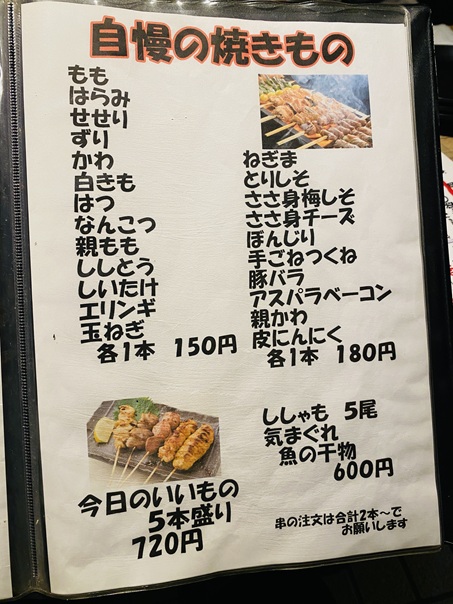 自慢の焼きもの
もも
はらみ
せせり
ずり
かわ
白きも
はつ
なんこつ
親もも
ししとう
しいたけ
エリンギ
玉ねぎ
各1本 150円
ねぎま
とりしそ
ささ身梅しそ
ささ身チーズ
ぼんじり
手ごねつくね
豚バラ
アスパラベーコン
親かわ
皮にんにく
各1本 180円
今日のいいもの
5本盛り
720円
ししゃも 5尾
気まぐれ
魚の干物
600円
串の注文は合計2本〜で
お願いします